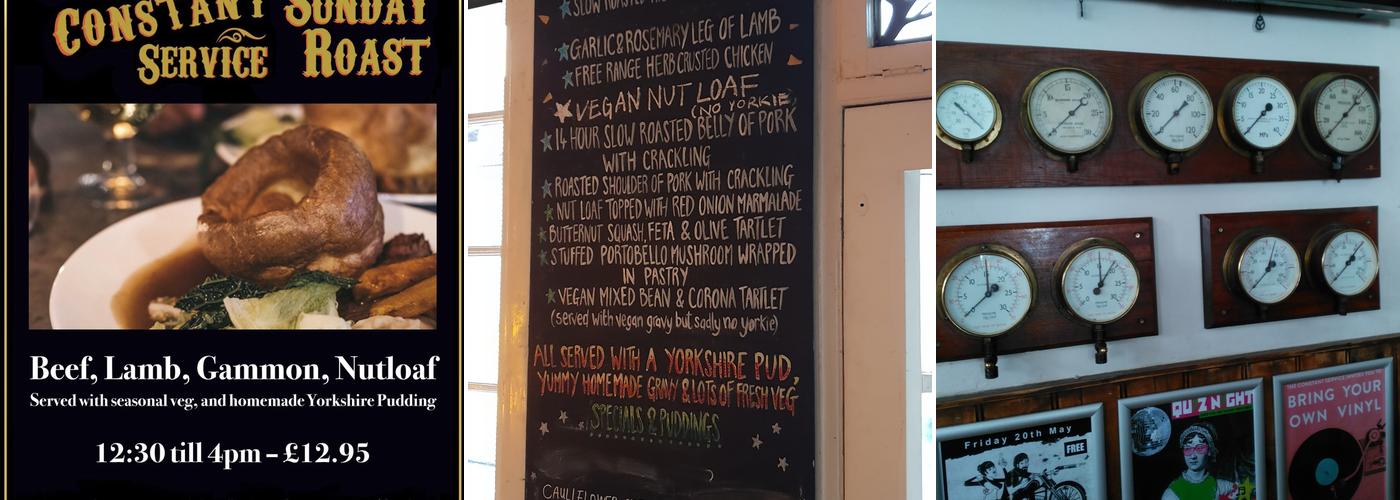 CONSTANT SUNDAY
SERVICE ROAST
Beef, Lamb, Gammon, Nutloaf
Served with seasonal veg, and homemade Yorkshire Pudding
12:30 till 4pm – £12.95
SLOW ROASTED
GARLIC & ROSEMARY LEG OF LAMB
FREE RANGE HERB CRUSTED CHICKEN
VEGAN NUT LOAF
(NO YORKIE)
14 HOUR SLOW ROASTED BELLY OF PORK
WITH CRACKLING
ROASTED SHOULDER OF PORK WITH CRACKLING
NUT LOAF TOPPED WITH RED ONION MARMALADE
BUTTERNUT SQUASH, FETA & OLIVE TARTLET
STUFFED PORTOBELLO MUSHROOM WRAPPED
IN PASTRY
VEGAN MIXED BEAN & CORONA TARTLET
(served with vegan gravy but sadly no yorkie)
ALL SERVED WITH A YORKSHIRE PUD,
YUMMY HOMEMADE GRAVY & LOTS OF FRESH VEG
SPECIALS & PUDDINGS
Friday 20th May
FREE
QU Z N GHT
THE CONSTANT SERVICE INVITES YOU TO
BRING YOUR
OWN VINYL